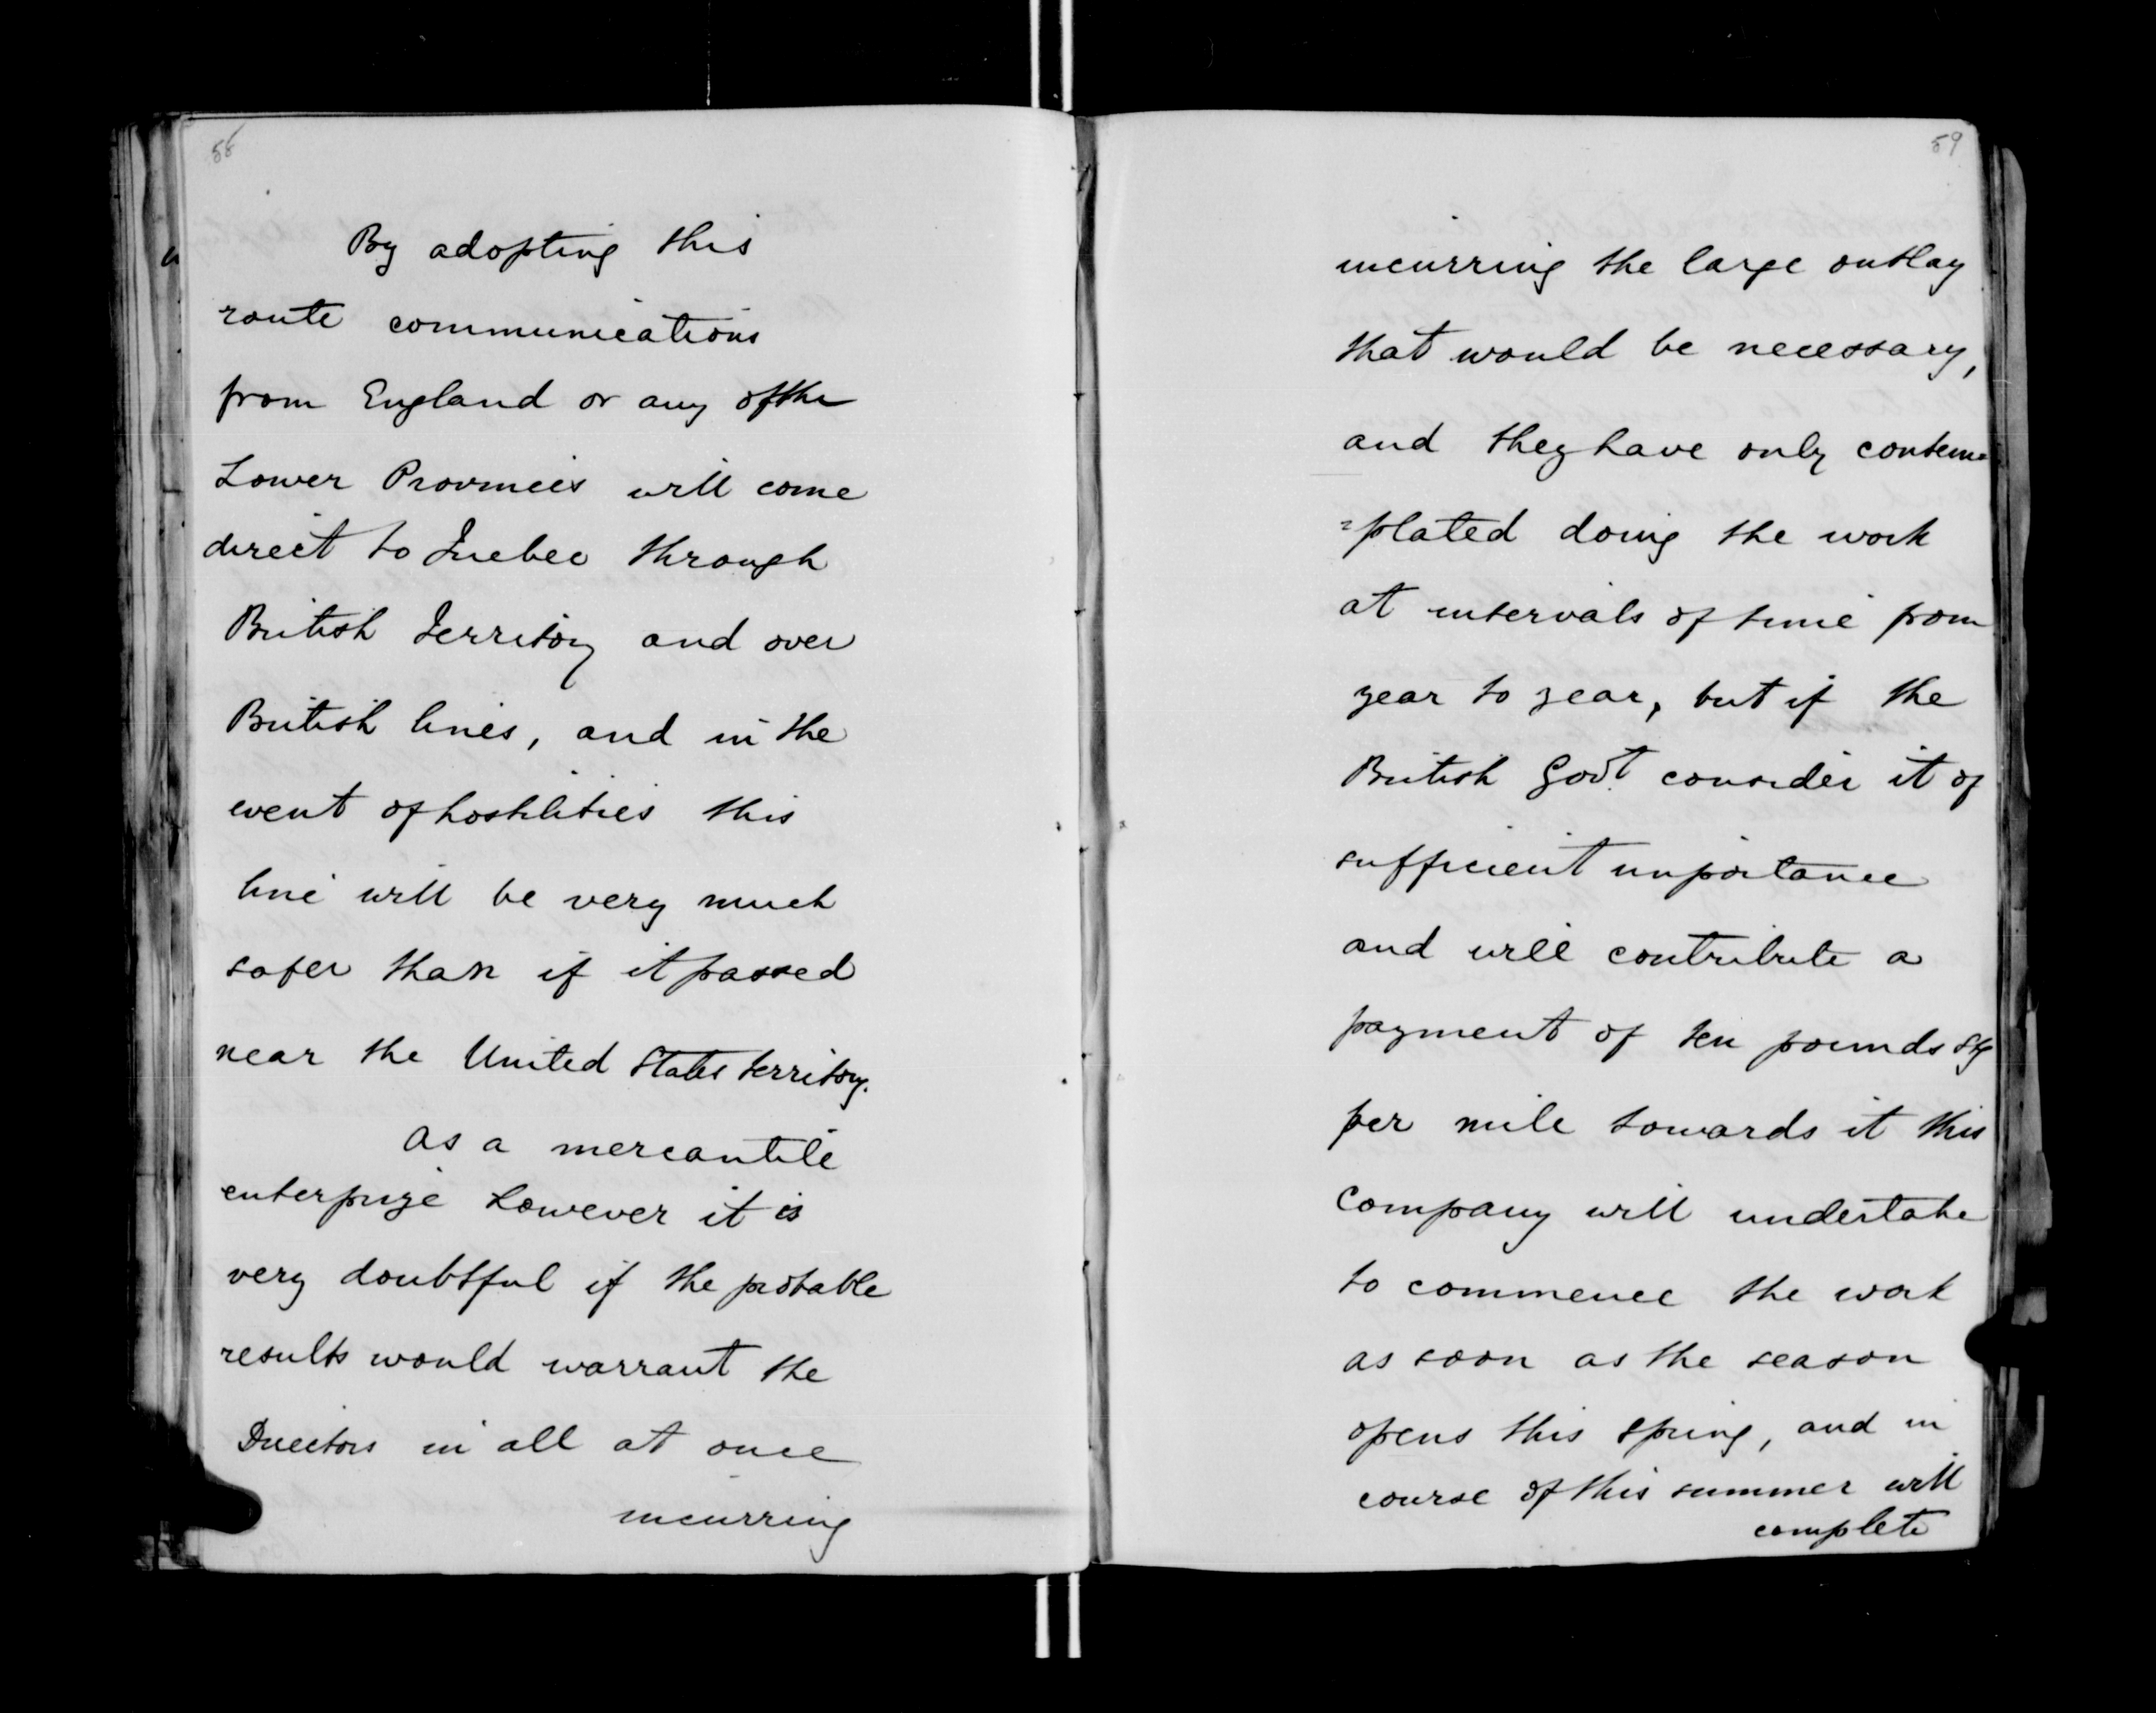 58
By adopting this
route communications
from England or any of the
Lower Provinces will come
direct to Quebec through
British Territory and over
British lines, and in the
event of hostilities this
line will be very much
safer than if it passed
near the United States territory.
As a mercantile
enterprize however it is
very doubtful if the probable
results would warrant the
Directors in all at once
incurring
59
incurring the large outlay
that would be necessary,
and they have only contem=
=plated doing the work
at intervals of time from
year to year, but if the
British Govt. consider it of
sufficient importance
and will contribute a
payment of ten pounds stg
per mile towards it this
Company will undertake
to commence the work
as soon as the season
opens this spring, and in
course of this summer will
complete